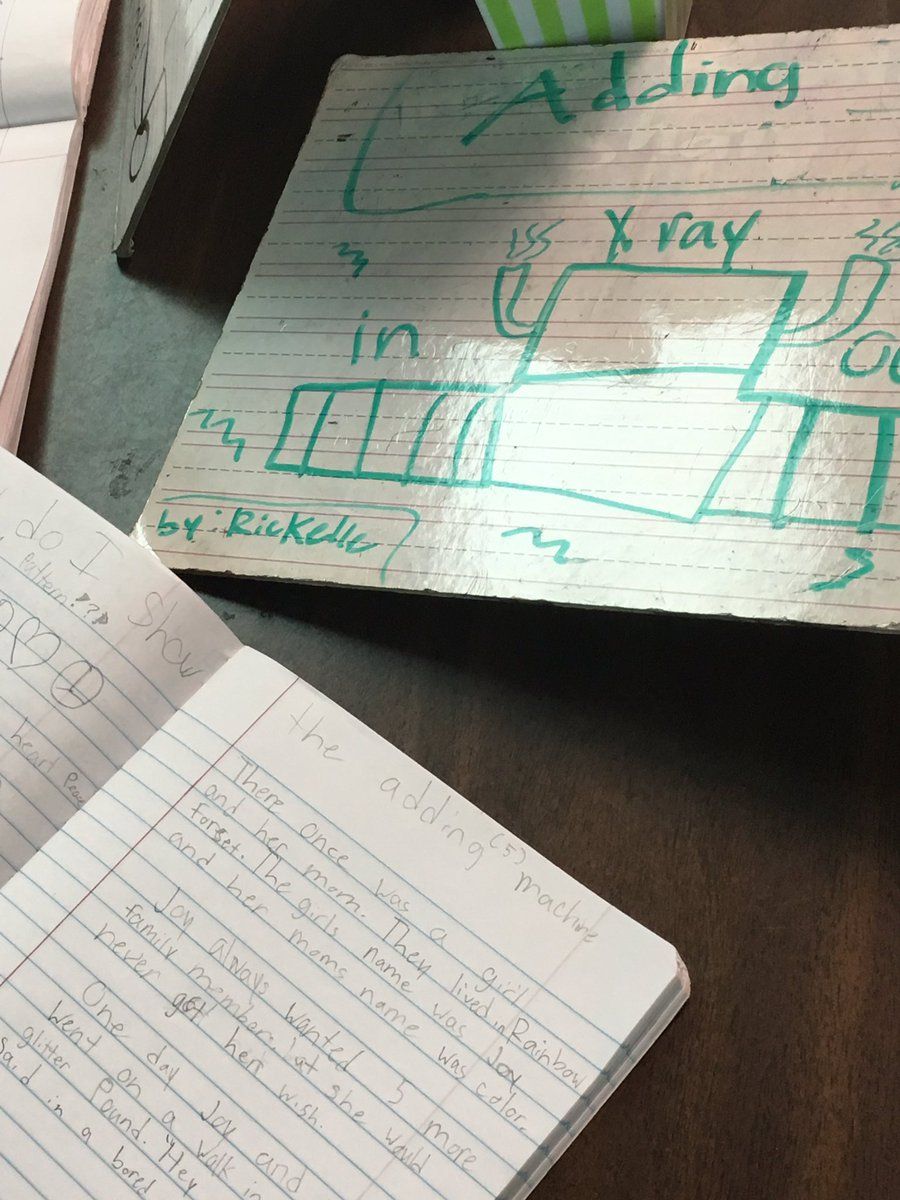 Adding
X ray
in
by: Rickelle
do I
show
Pattern???
heart Peace
the adding (5) machine
There once was a girl
and her mom. They lived in Rainbow
Forset. The girls name was Joy
and her moms name was color.
Joy always wanted 5 more
family members but she would
never get her wish.
One day Joy and
went on a walk in
glitter Pound. "Hey
said in a bored